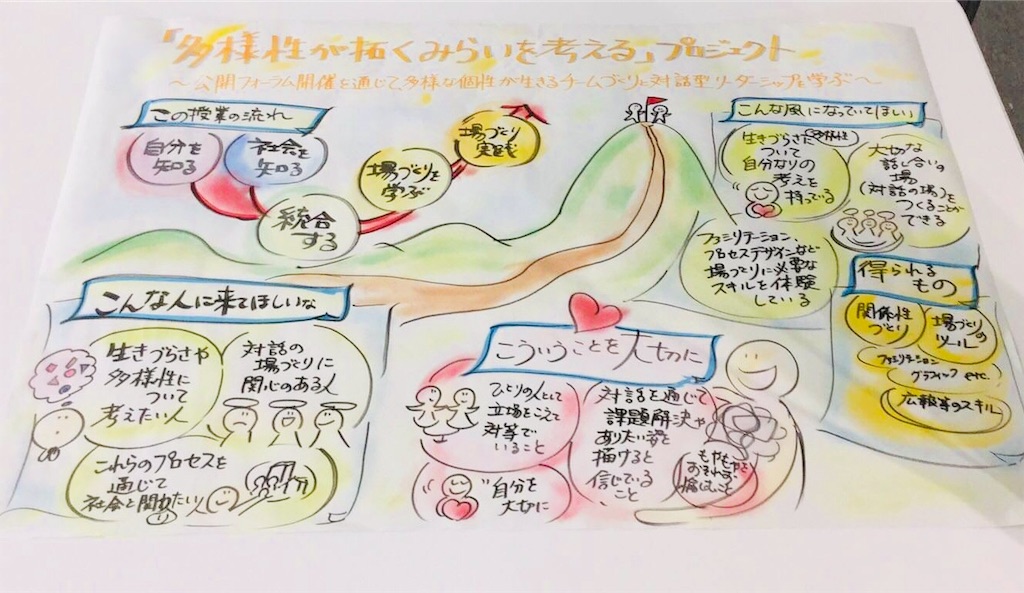 「多様性が拓くみらいを考える」プロジェクト
～公開フォーラム開催を通じて、多様な個性が生きるチームづくりと対話型リーダーシップを学ぶ～
この授業の流れ
自分を
知る
社会を
知る
統合
する
場づくりを
学ぶ
場づくり
実践
こんな風になっていてほしい
生きづらさに
(多様性)
ついて
自分なりの
考えを
持っている
大切な
話し合いの
場
(対話の場)を
つくることが
できる
ファシリテーション、
プロセスデザインなど
場づくりに必要な
スキルを体験
している
得られる
もの
関係性
づくり
場づくりの
ツール
ファシリテーション
グラフィック etc.
広報等のスキル
こんな人に来てほしいな
生きづらさや
多様性に
ついて
考えたい人
対話の
場づくりに
関心のある人
これらのプロセスを
通じて
社会と関わりたい人
こういうことを大切に
ひとりの人として
立場をこえて
対等で
いること
対話を通じて
課題解決や
ありたい姿を
描けると
信じている
こと
自分を
大切に
もやもやを
おそれない